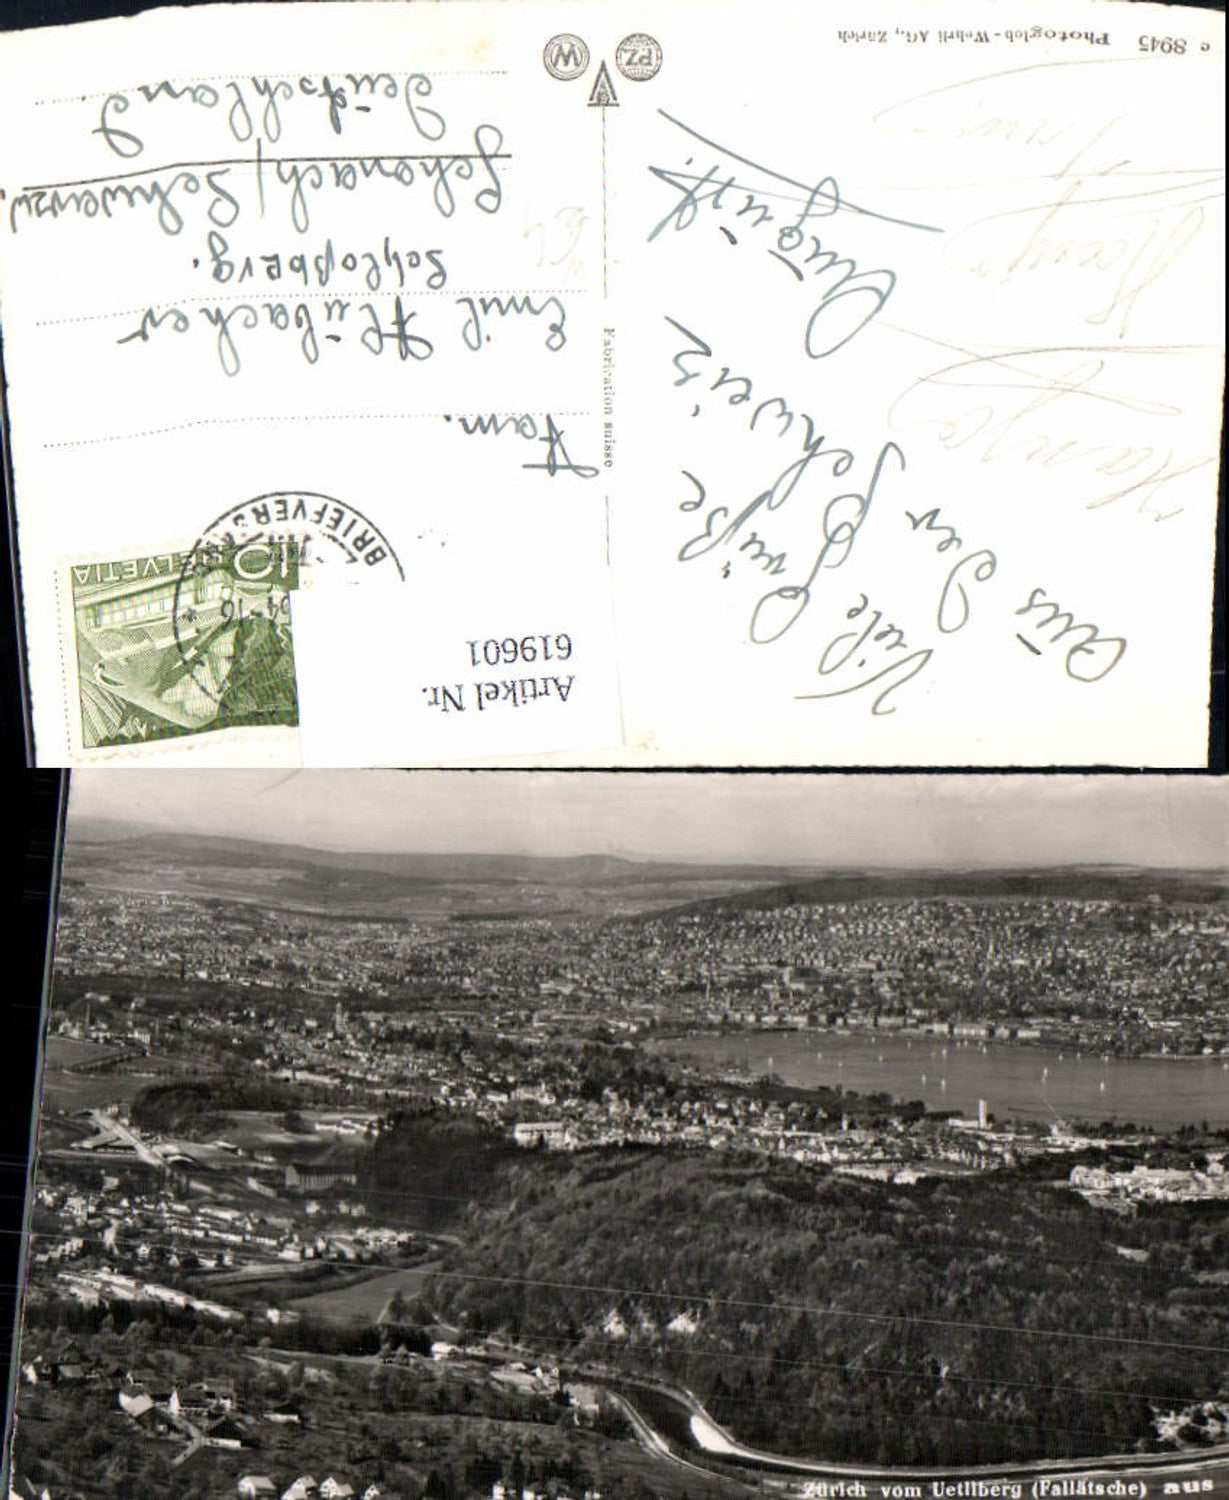 c 8945 Photoglob-Wehrli AG., Zürich
Viele Grüße
aus der Schweiz
August.
Fabrication suisse
W
PZ
HELVETIA
10
BRIEFVERS
54-16
Artikel Nr.
619601
Fam.
Emil
Schloßberg.
Schonach/Schwarzw.
Deutschland
Zürich vom Uetliberg (Fallätsche) aus